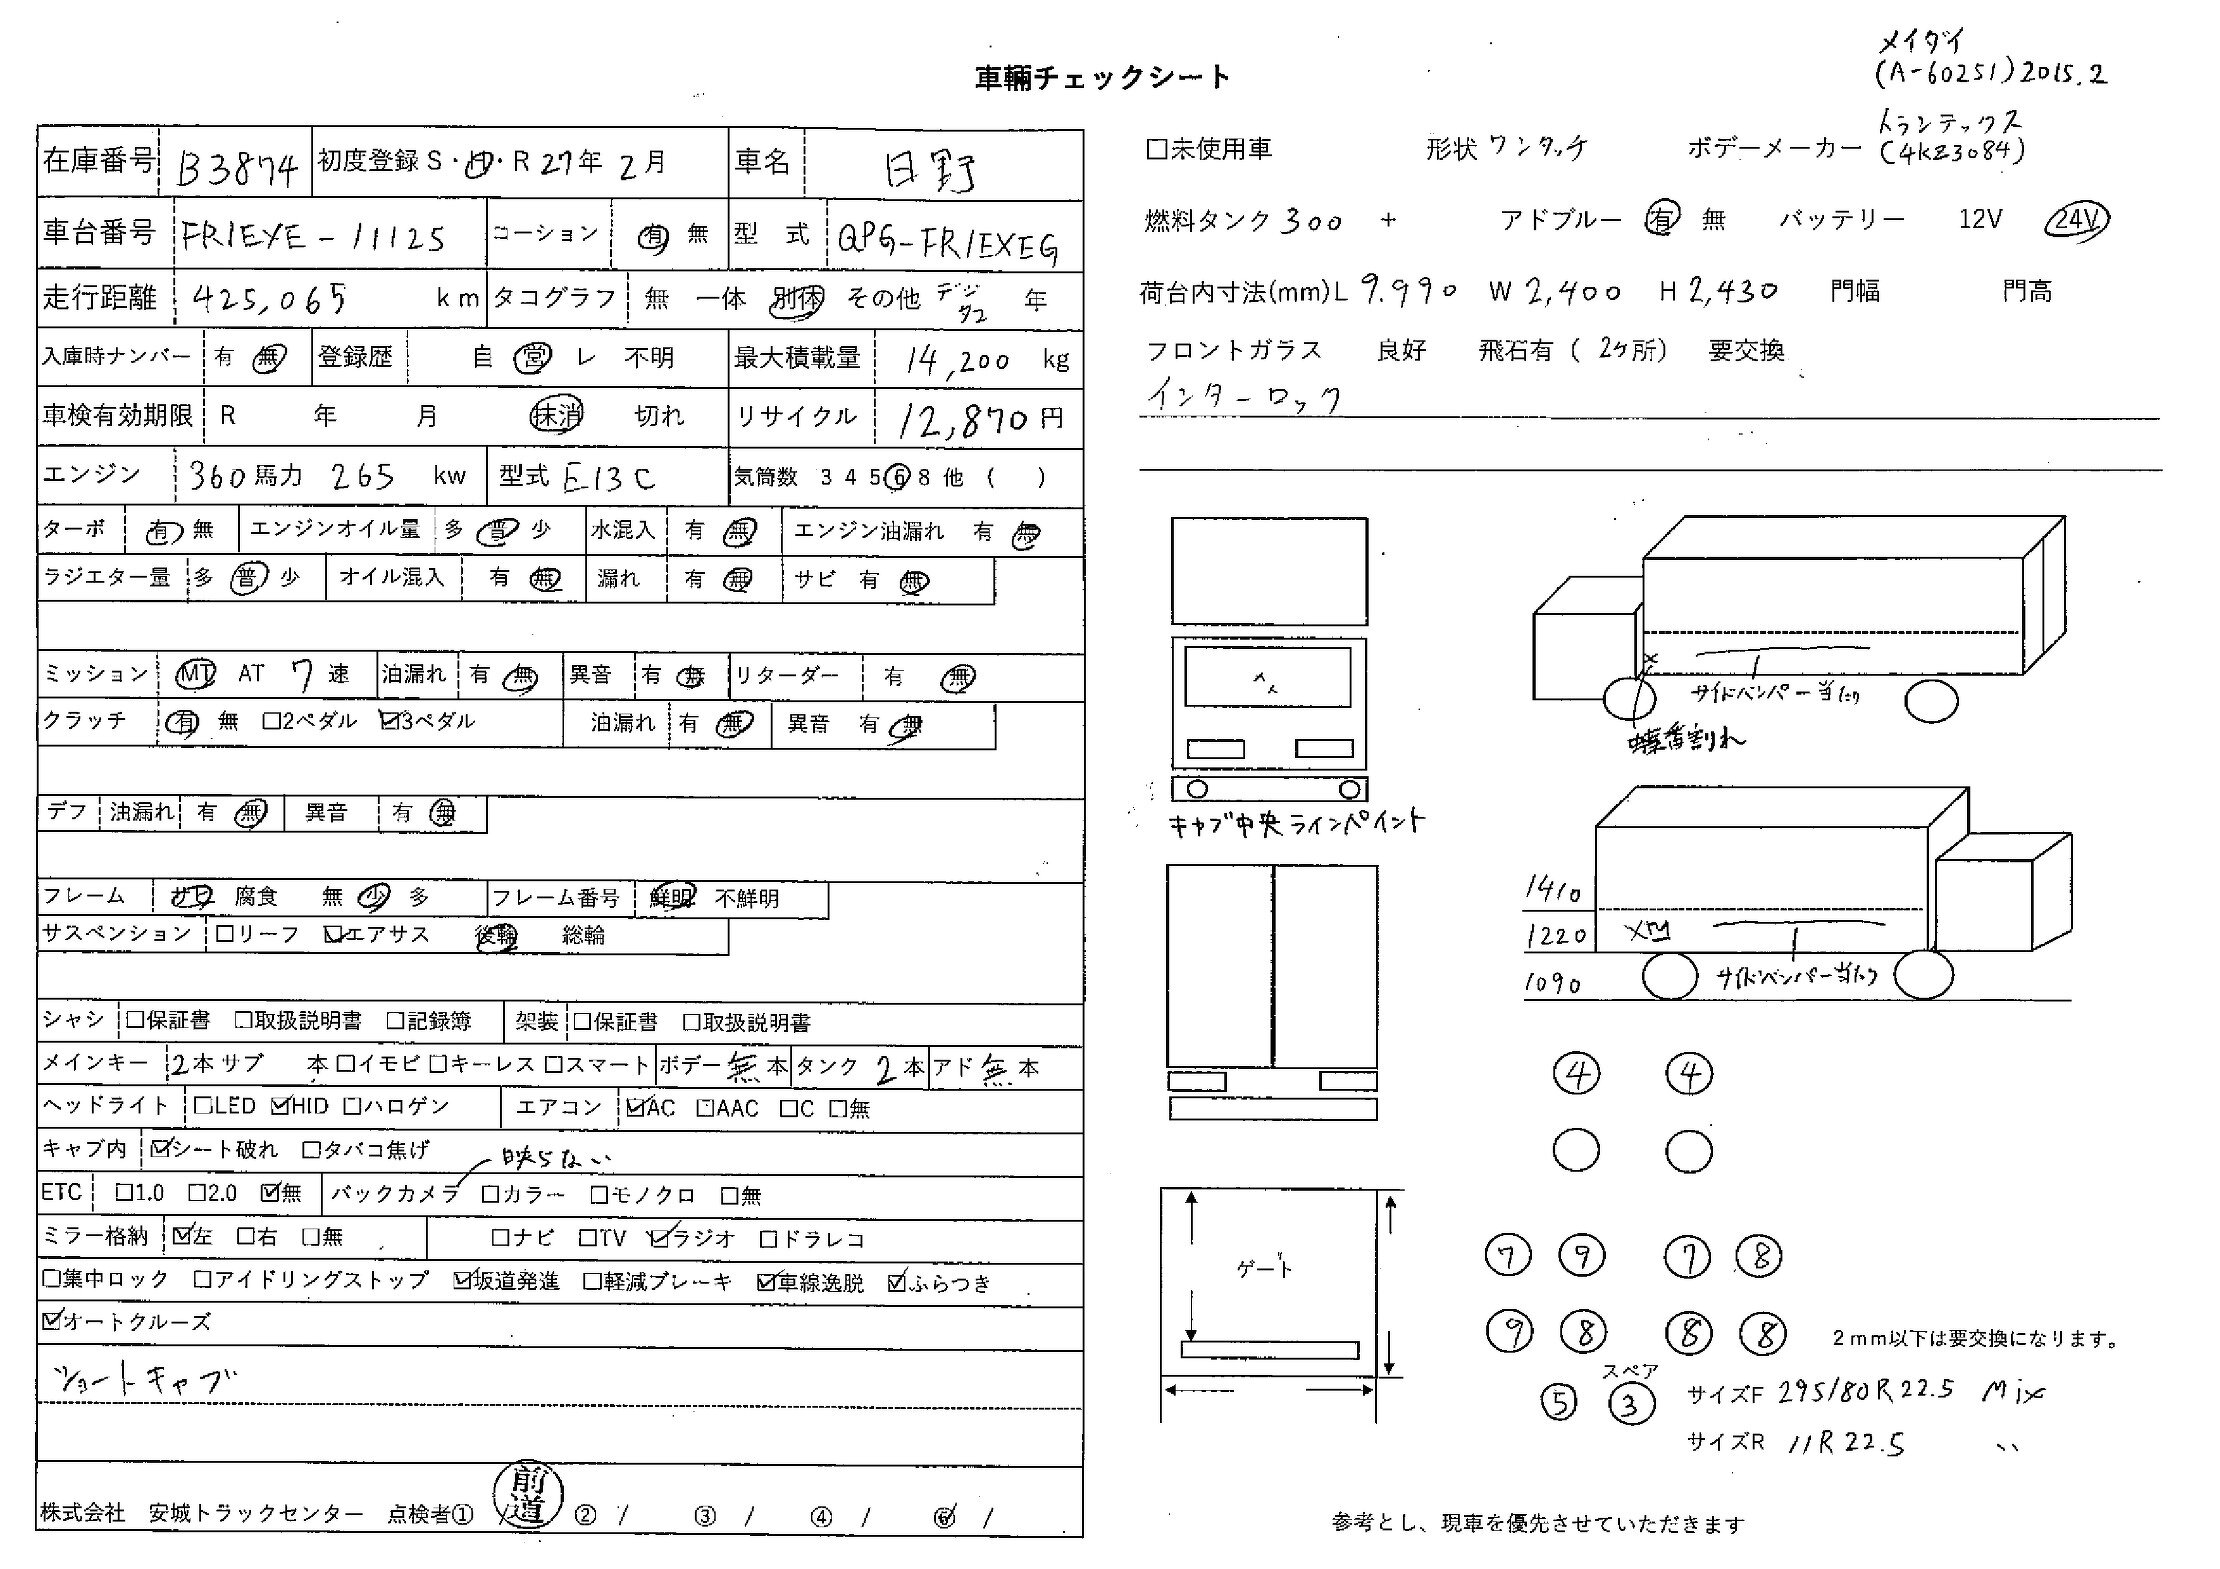 車輌チェックシート
メイダイ
(A-60251)2015.2
在庫番号 B3874 初度登録 S・H・R 27年 2月 車名 日野
車台番号 FR1EXE-11125 コーション 有 無 型式 QPG-FR1EXEG
走行距離 425,065 km タコグラフ 無 一体 別体 その他 デジタコ 年
入庫時ナンバー 有 無 登録歴 自 営 レ 不明 最大積載量 14,200 kg
車検有効期限 R 年 月 抹消 切れ リサイクル 12,870円
エンジン 360馬力 265 kw 型式 E13C 気筒数 3 4 5 6 8 他 ( )
ターボ 有 無 エンジンオイル量 多 普 少 水混入 有 無 エンジン油漏れ 有 無
ラジエター量 多 普 少 オイル混入 有 無 漏れ 有 無 サビ 有 無
ミッション MT AT 7速 油漏れ 有 無 異音 有 無 リターダー 有 無
クラッチ 有 無 □2ペダル ☑3ペダル 油漏れ 有 無 異音 有 無
デフ 油漏れ 有 無 異音 有 無
フレーム サビ 腐食 無 少 多 フレーム番号 鮮明 不鮮明
サスペンション □リーフ ☑エアサス 後輪 総輪
シャシ □保証書 □取扱説明書 □記録簿 架装 □保証書 □取扱説明書
メインキー 2本 サブ 本 □イモビ □キーレス □スマート ボデー 無 本 タンク 2本 アド 無 本
ヘッドライト □LED ☑HID □ハロゲン エアコン ☑AC □AAC □C □無
キャブ内 ☑シート破れ □タバコ焦げ
映らない
ETC □1.0 □2.0 ☑無 バックカメラ □カラー □モノクロ □無
ミラー格納 ☑左 □右 □無 □ナビ □TV ☑ラジオ □ドラレコ
□集中ロック □アイドリングストップ ☑坂道発進 □軽減ブレーキ ☑車線逸脱 ☑ふらつき
☑オートクルーズ
ショートキャブ
株式会社 安城トラックセンター 点検者① / 前道 ② / ③ / ④ / ⑥ /
トランテックス
□未使用車 形状 ワンタッチ ボデーメーカー (4KZ3084)
燃料タンク 300 + アドブルー 有 無 バッテリー 12V 24V
荷台内寸法(mm) L 9.990 W 2,400 H 2,430 門幅 門高
フロントガラス 良好 飛石有 ( 2ヶ所) 要交換
インターロック
サイドバンパー当たり
蝶番割れ
キャブ中央ラインペイント
1410
1220
1090
サイドバンパー当たり
④ ④
⑦ ⑨ ⑦ ⑧
⑨ ⑧ ⑧ ⑧ 2mm以下は要交換になります。
スペア
⑤ ③ サイズF 295/80R22.5 Mix
サイズR 11R22.5 〃
ゲート
参考とし、現車を優先させていただきます